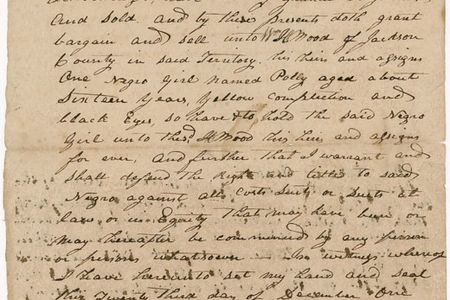 And Sold and by these Presents doth grant
bargain and sell unto Wm H Wood of Jackson
County in said Territory, his heirs and assigns
One Negro Girl named Polly aged about
Sixteen Years, Yellow Complection and
black Eyes, so have & to hold the said Negro
Girl unto the sd H Wood his heirs and assigns
for ever, and further that I warrant and
shall defend the Right and title to said
Negro against all costs suits or
law or in Equity that may have been or
may hereafter be commenced by any person
or persons whatsoever In witness whereof
I have hereunto set my hand and seal
this Twenty third day of December One